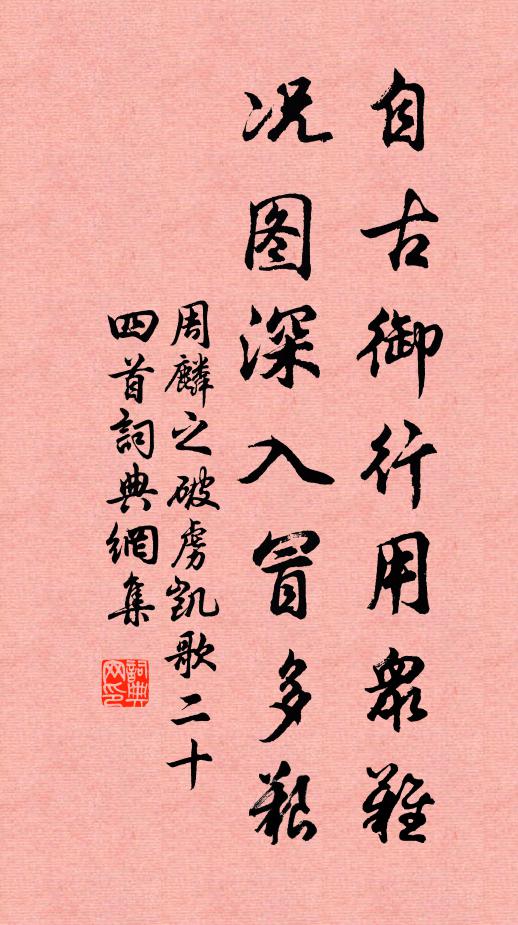 自古御行用衆難
况图深入冒多艱
周麟之破虏凯歌二十
四首詞典網集
詞典网印